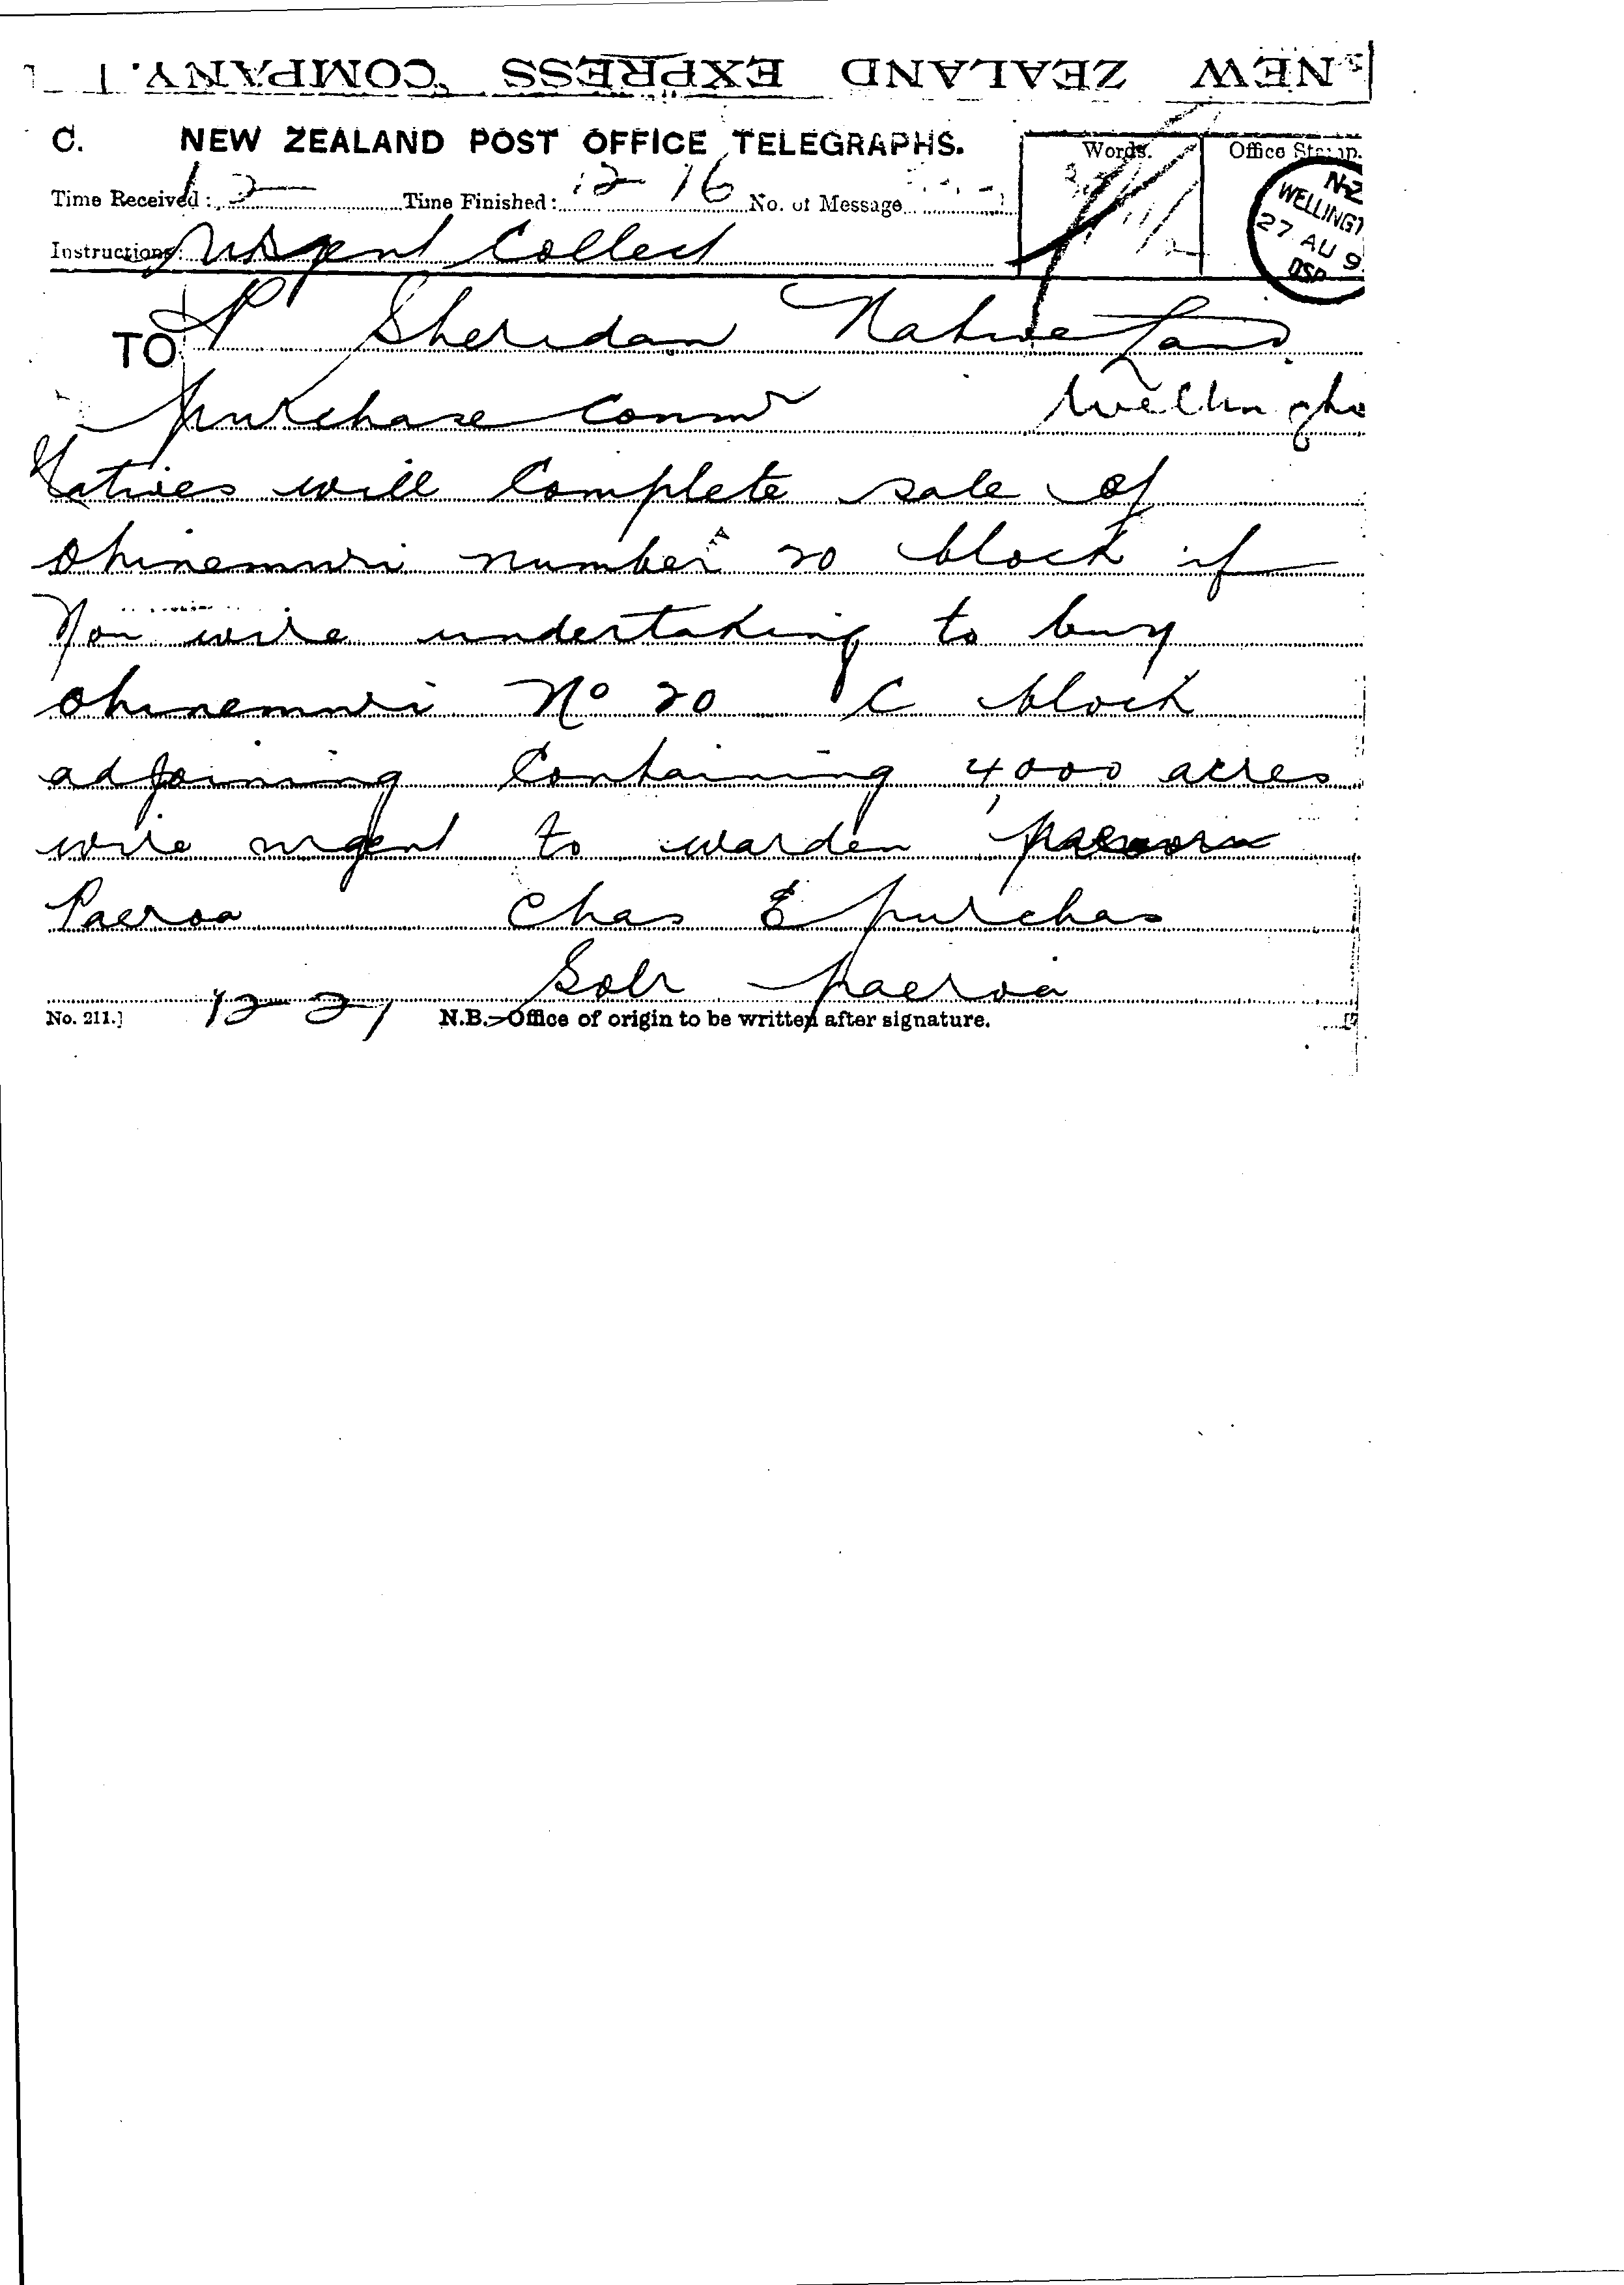 NEW ZEALAND EXPRESS COMPANY.
C. NEW ZEALAND POST OFFICE TELEGRAPHS.
Words. Office Stamp.
Time Received: 12 Time Finished: 12 16 No. of Message
N.Z
WELLINGT
27 AU 9
Instructions: Urgent Collect
TO P Sheridan Native Land
purchase Commr Wellington
Natives will complete sale of
Ohinemuri number 20 block if
You wire undertaking to buy
Ohinemuri No 20 C block
adjoining Containing 4000 acres
wire urgent to warden
Paeroa Chas E purchas
Solr paeroa
12-21
No. 211.] N.B.—Office of origin to be written after signature.